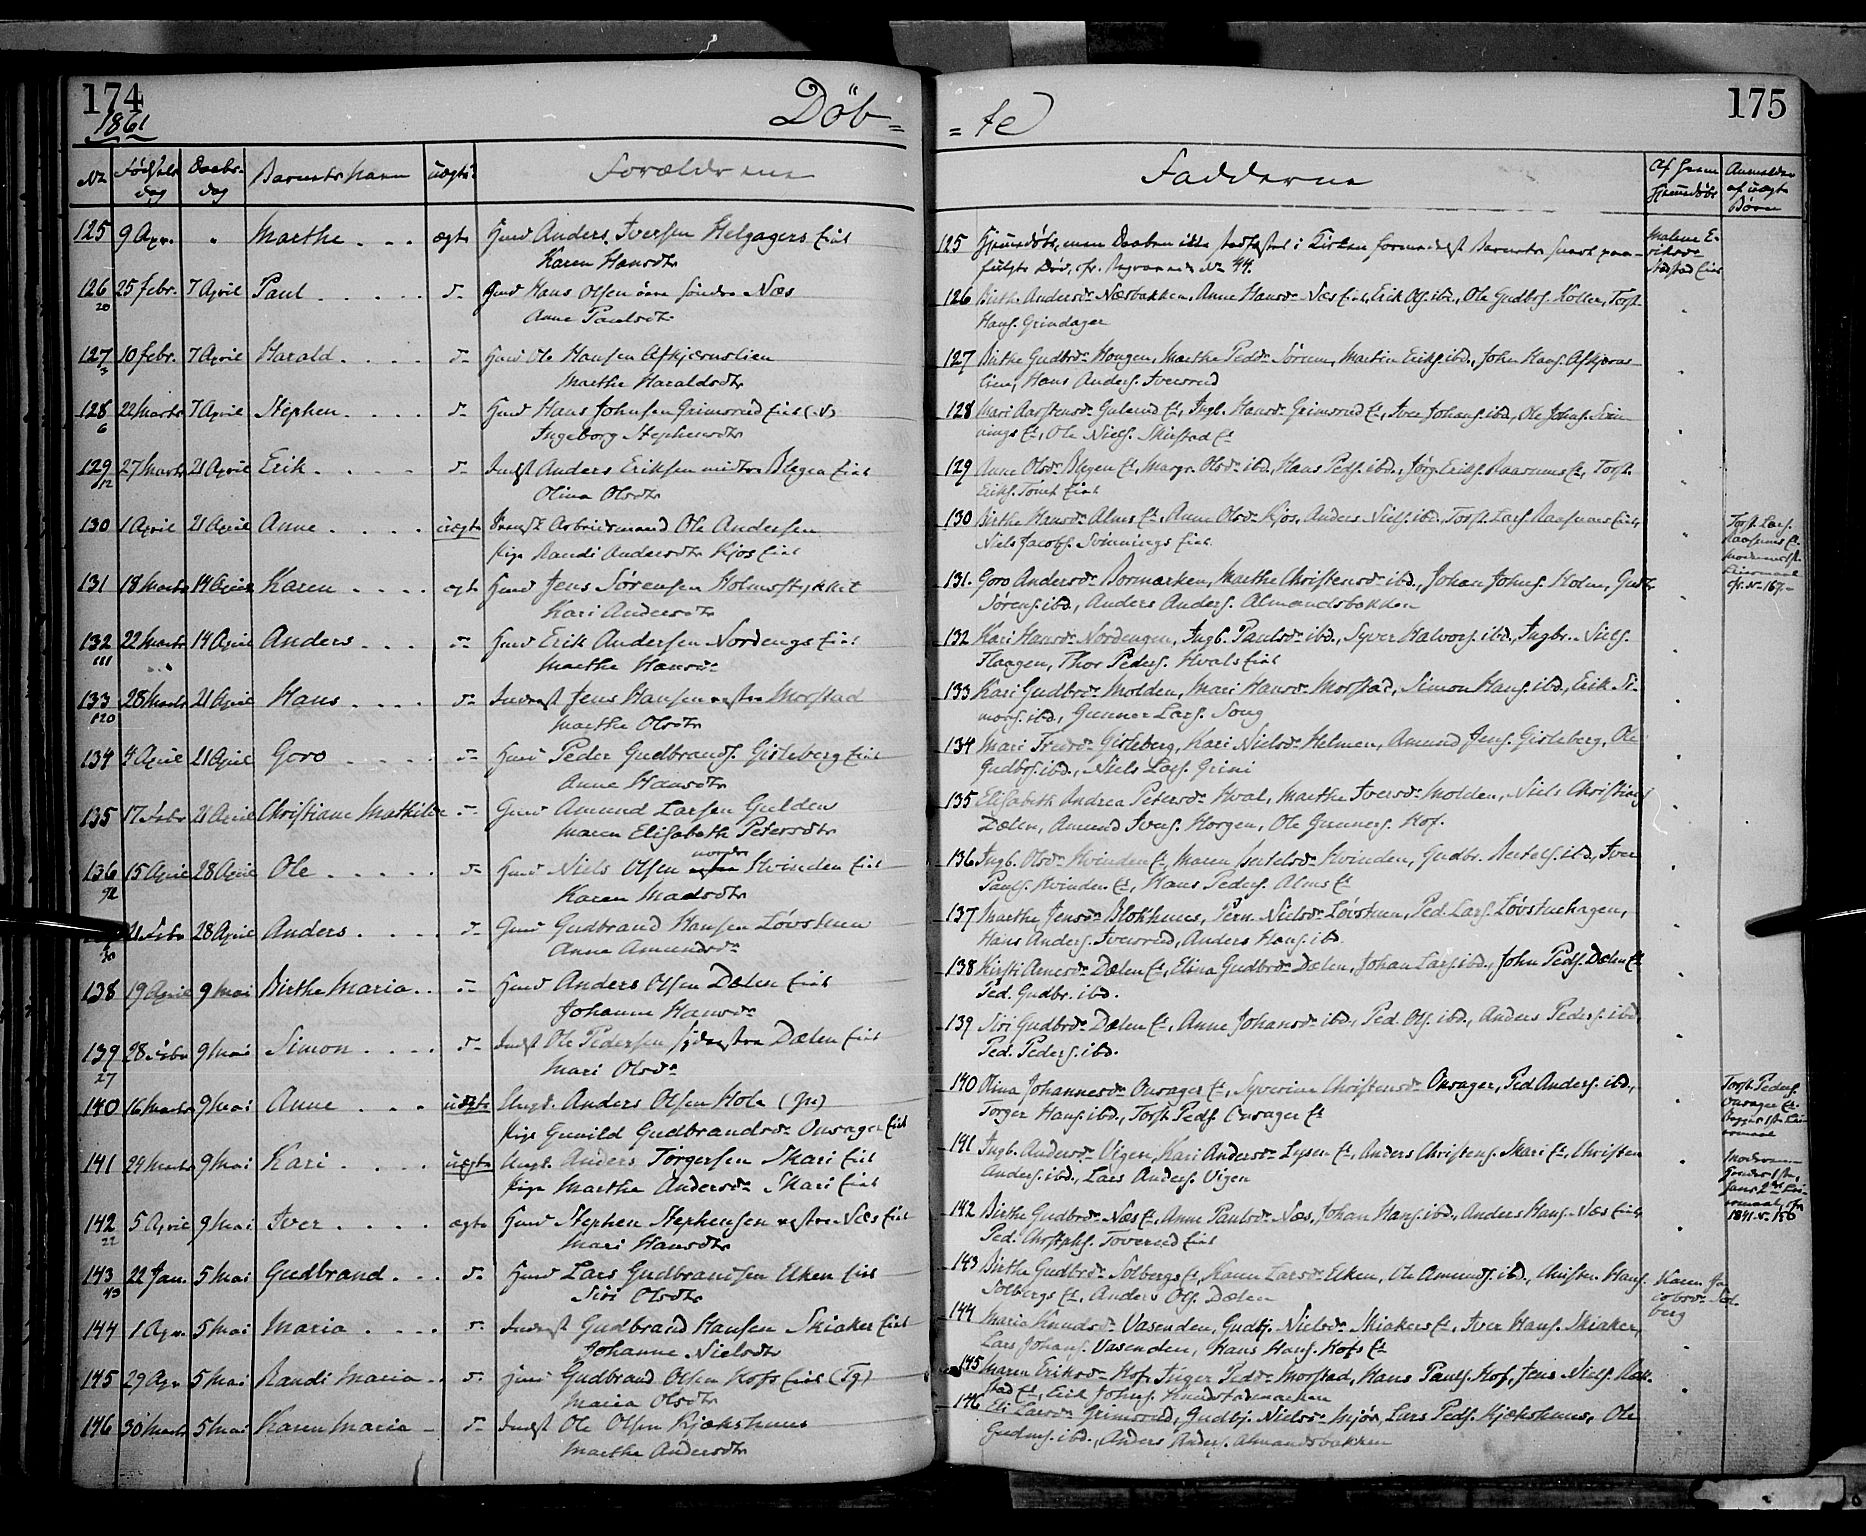 174
1861
Döb=
№ Fødsels dag Daabs- dag Barnets Navn uægte Forældrene
125 9 Apr. " Marthe ægte Gmd Anders Iversen Helgagers Eiet
Karen Hansdtr
126 25 Febr. 7 April Paul d- Gmd Hans Olsen øvre søndre Næs
20 Anne Paulsdtr
127 10 Febr. 7 April Harald Hmd Ole Hansen Afkjærnslien
3 Marthe Haraldsdtr
128 22 Marts 7 April Stephen d- Hmd Hans Johnsen Grimsrud Eiet
6 Ingeborg Stephensdtr
129 27 Marts 21 April Erik d- Indst Anders Eriksen midtre Blegen Eiet
12 Olina Olsdtr
130 1 April 21 April Anne uægte Arbeidsmand Ole Andersen
Pige Randi Andersdtr Kjos Eiet
131 18 Marts 14 April Karen ægte Hmd Jens Sørensen Holmstykket
Kari Andersdtr
132 22 Marts 14 April Anders d- Hmd Erik Andersen Nordengs Eiet
Marthe Hansdr
133 28 Marts 21 April Hans d- Inderst Jens Hansen vestre Morstad
Marthe Olsdtr
134 4 April 21 April Goro d- Hmd Peder Gudbrands. Gisleberg Eiet
Anne Hansdtr
135 17 Febr 21 April Christiane Mathilde d- Gmd Amund Larsen Gulden
Maren Elisabeth Petersdtr
nordre
136 15 April 28 April Ole d- Hmd Niels Olsen Hvinden Eiet
Karen Madsdtr
21 Febr 28 April Anders d- Gmd Gudbrand Hansen Løvstuen
Anne Amundsdr
138 19 April 9 Mai Birthe Maria d- Hmd Anders Olsen Dælen Eiet
Johanne Hansdr
139 28 Febr 9 Mai Simon d- Indst Ole Pedersen Dælen Eiet
27 Mari Olsdr
140 16 Marts 9 Mai Anne uægte Ungk. Anders Olsen Hole
Pige Gunild Gudbrandsdr Onsager Eiet
141 24 Marts 9 Mai Kari uægte Ungk. Anders Torgersen Skari Eiet
Pige Marthe Andersdr Skari Eiet
142 5 April 9 Mai Iver ægte Hmd Stephen Stephensen vestre Næs Eiet
22 Mari Hansdtr
143 22 Jan. 5 Mai Gudbrand d- Hmd Lars Gudbrandsen Elken Eiet
43 Siri Olsdtr
144 1 Apr. 5 Mai Maria d- Inderst Gudbrand Hansen Skiaker Eiet
Johanne Nielsdtr
145 29 Apr 5 Mai Randi Maria d- Hmd Gudbrand Olsen Hofs Eiet
Maria Olsdtr
146 30 Marts 5 Mai Karen Maria d- Indst Ole Olsen Kjækshuus
Marthe Andersdtr
175
=te
Fadderne
Af hvem Hjemmedøbt Anmeldelse af uægte Børn
125 Hjemmedøbt, men Daaben ikke stadfæstet i Kirken formedelst Barnets snart paa-
fulgte Død, cfr. Begravede № 44.
126 Birthe Andersdr Næsbakken, Anne Hansdr Næs Eiet, Erik Ols. ibd., Ole Gudbrs. Kollen, Torst.
Hans. Grindager
127 Birthe Gudbrdr Hougen, Marthe Pedsdr Sørum, Martin Eriks. ibd., John Hans. Afkjærns
lien, Hans Anders. Iversrud
128 Mari Karstensdr Gulerud Et, Ingb. Hansdr Grimsrud Et, Iver Johns. ibd, Ole Johns. Svin
nings Et, Ole Niels. Skirstad Et
129 Anne Olsdr Blegen Et, Margr. Olsdr ibd., Hans Peds. ibd., Jørg. Eriks. Raasums Et, Torst.
Eriks. Tomt Eiet
130 Birthe Hansdr Alms Et, Anne Olsdr Kjos, Anders Niels. ibd., Torst. Lars. Raasums Eiet,
Niels Jacobs. Svinnings Eiet.
131. Goro Andersdr Bormarken, Marthe Christensdr ibd., Johan Johns. Holm, Gudbr
Sørens. ibd., Anders Anders. Almandsbakken
132 Kari Hansdr Nordengen, Ingb. Paulsdr ibd., Syver Halvors. ibd., Ingbr. Niels.
Flaagen, Thor Peders. Hvals Eiet
133 Kari Gudbrdr Molden, Mari Hansdr Morstad, Simon Hans. ibd., Erik Si-
mons. ibd., Gunner Lars. Song
134 Mari Iversdr Gisleberg, Kari Nielsdr Helmen, Amund Jens. Gisleberg, Ole
Gudbrs. ibd., Niels Lars. Grini
135 Elisabeth Andrea Petersdr Hval, Marthe Iversdr Molden, Niels Christians
Dælen, Amund Ivers. Horgen, Ole Gunners. Hof.
136 Ingb. Olsdr Hvinden Et, Maren Bertelsdr Hvinden, Gudbr. Bertels. ibd., Iver
Pauls. Hvinden Et, Hans Peders. Alms Et
137 Marthe Jensdr Blokhuus, Pern. Nielsdr Løvstuen, Ped. Lars. Løvstuehagen,
Hans Anders. Iversrud, Anders Hans. ibd
138 Kirsti Arnesdr Dælen Et, Elina Gudbrdr Dælen, Johan Lars. ibd., John Peds. Dælen Et
Ped. Gudbr. ibd.
139 Siri Gudbrdr Dælen Et, Anne Johansdr ibd., Ped. Ols. ibd., Anders Peders. ibd
Ped. Peders. ibd.
140 Olina Johannesdr Onsager Et, Syverine Christensdr Onsager, Ped Anders. ibd.,
Torger Hans. ibd., Torst. Peds. Onsager Et
141 Ingb. Andersdr Vigen, Kari Andersdr Lysen Et, Anders Christens. Skari Et, Christen
Anders. ibd., Lars Anders. Vigen
142 Birthe Gudbrdr Næs Et, Anne Paulsdr Næs, Johan Hans. ibd., Anders Hans. Næs Eiet,
Ped. Christophs. Toverud Eiet
143 Birthe Gudbrdr Solbergs Et, Karen Larsdr Elken, Ole Amunds. ibd., Christen Hans.
Solbergs Et, Anders Ols. Dælen
144 Maria Knudsdr Vasenden, Gudbj. Nielsdr Skiakers Et, Iver Hans. Skiaker,
Lars Johans. Vasenden, Hans Hans. Hofs Et
145 Maren Eriksdr Hof, Inger Pedsdr Morstad, Hans Pauls. Hof, Jens Niels. Rok-
stad Et, Erik Johns.
146. Eli Larsdr Grimsrud, Gudbj. Nielsdr Mjør, Lars Peds. Kjækshuus, Ole
Gudms. ibd., Anders Anders. Almandsbakken
Malene E-
riksdr
Eiet
Torst. Lars.
Raasums Et
cfr. № 167.
Torst. Peders.
Onsager Et.
1841 № 156
Karen Ja-
cobsdr Sol-
berg